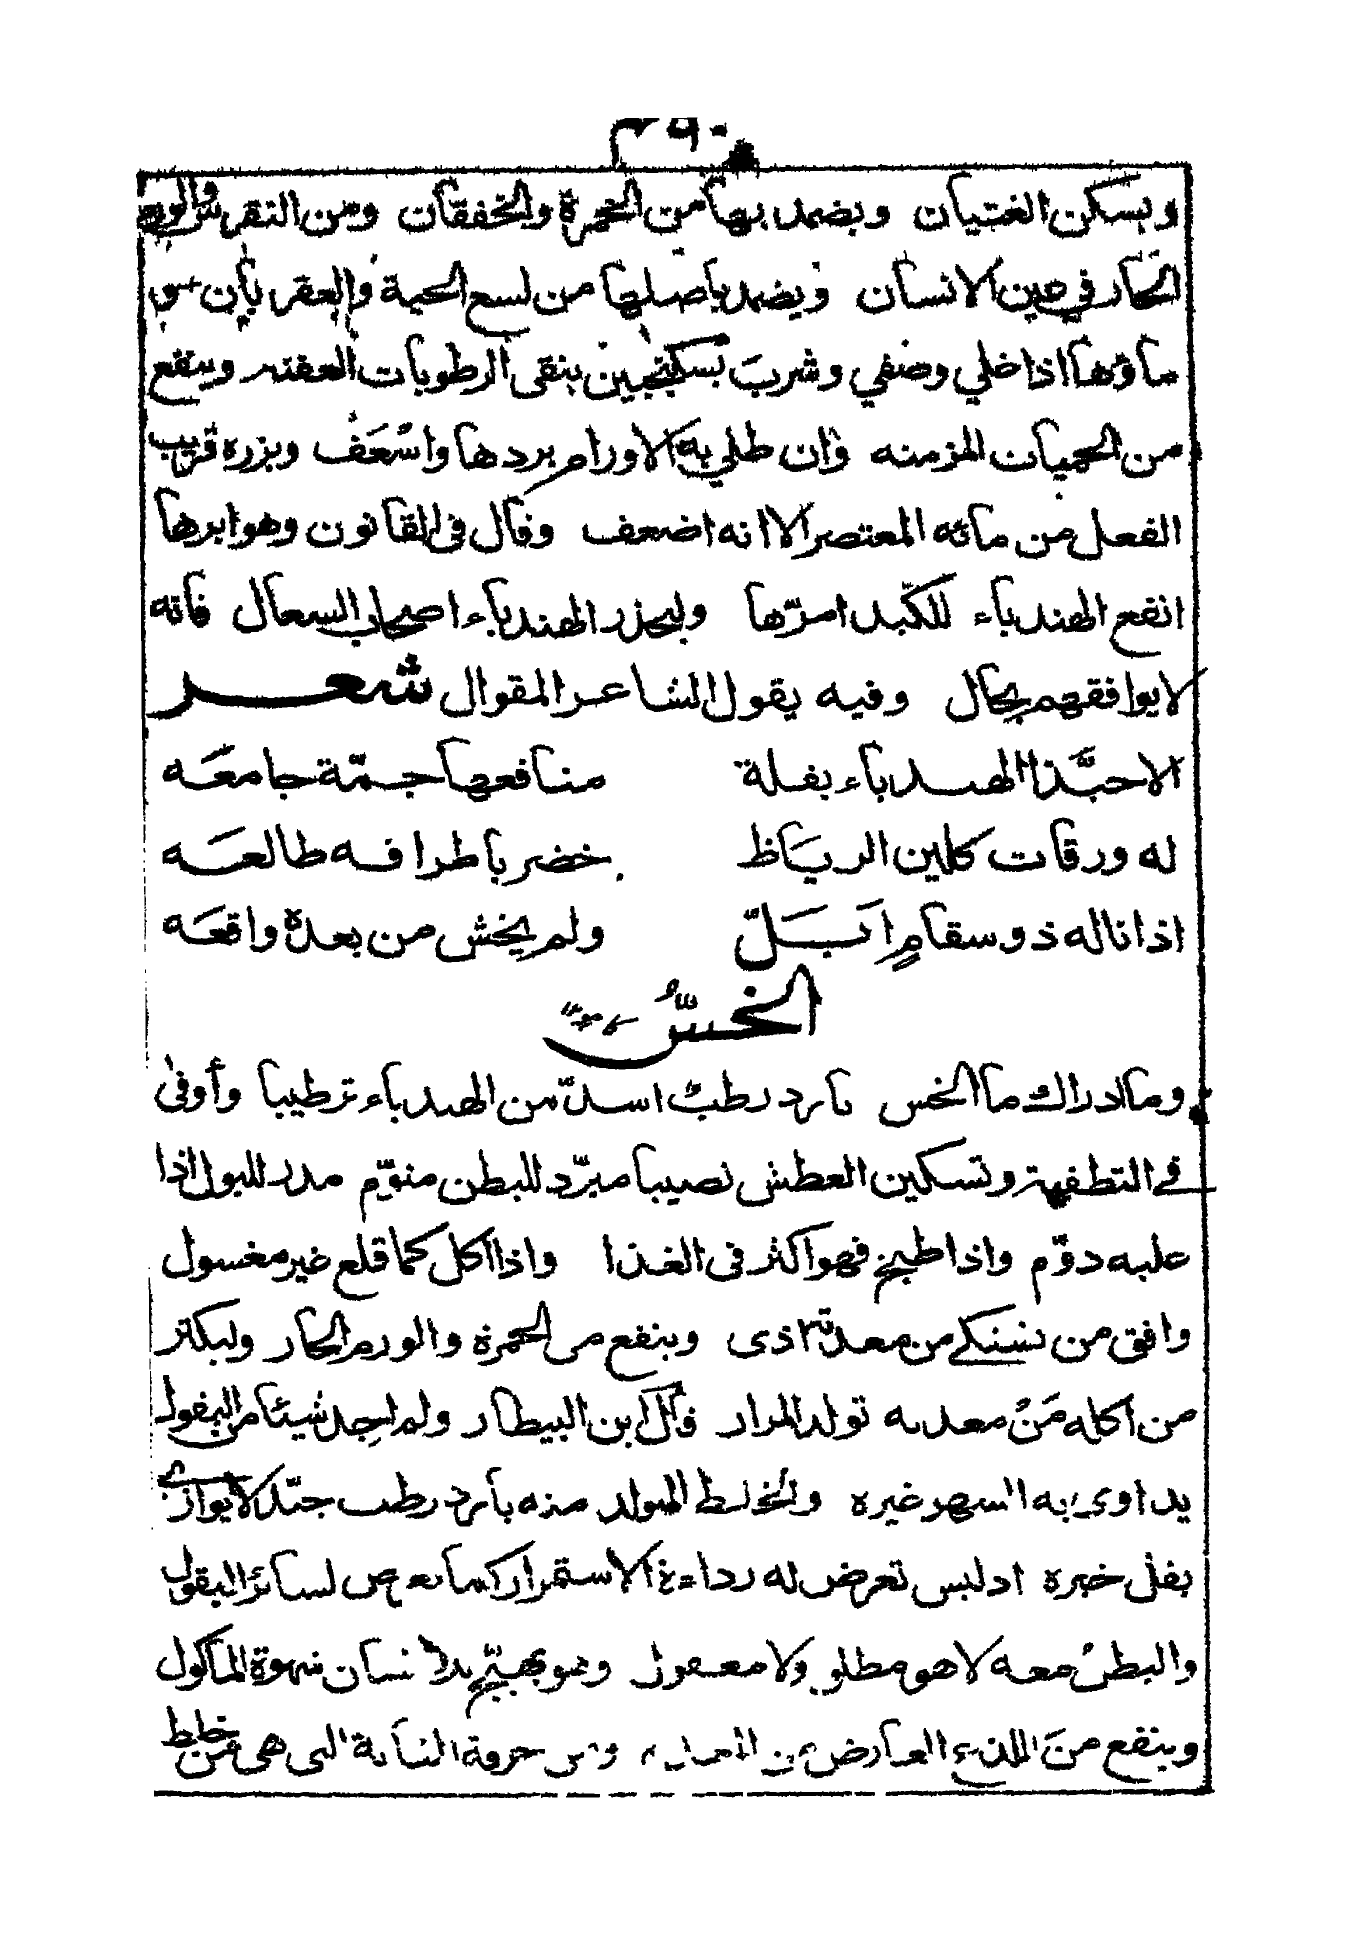 ويسكن الغثيان ويضمد بها من الحمرة والخفقان ومن النقرس والورم
الحار في عين الانسان ويضمد باصلها من لسع الحية والعقربان
ماؤها اذا غلي وصفي وشرب بسكنجبين ينقى الرطوبات العفنه وينفع
من الحميات المزمنه وان طلي به الاورام بردها واسعف وبزره قريب
الفعل من مائه المعتصر الا انه اضعف وقال في القانون وهو ابرها
انفع الهندباء للكبد امرّها وليحذر الهندباء اصحاب السعال فانه
لا يوافقهم بحال وفيه يقول الشاعر المقوال شعر
الا حبّذا الهندباء بقلة منافعها جمّة جامعَه
له ورقات كلين الرياط خضر باطرافه طالعه
اذا ناله ذو سقامٍ ابَلّ ولم يخش من بعده واقعَه
الخسّ
وما ادراك ما الخس بارد رطب اشدّ من الهندباء ترطيبا وأوفى
في التطفية وتسكين العطش نصيبا مبرّد للبطن منوّم مدر للبول اذا
عليه دوّم واذا طبخ فهو اكثر في الغذا واذا اكل كما قلع غير مغسول
وافق من يشتكي من معدته اذى وينفع من الحمرة والورم الحار وليكثر
من اكله مَنْ معدته تولد المرار قال ابن البيطار ولم اجد شيئا من البقول
يداوى به السهر غيره والخلط المتولد منه بارد رطب جيّد لا يوازي
بقل خيره اذ ليس تعرض له رداءة الاستمراء كما تعرض لسائر البقول
والبطن معه لا هو مطلو ولا معقول وهو يهيّج بالانسان شهوة المأكول
وينفع من اللذع العارض من حرقة المثانة التي هي من خلط